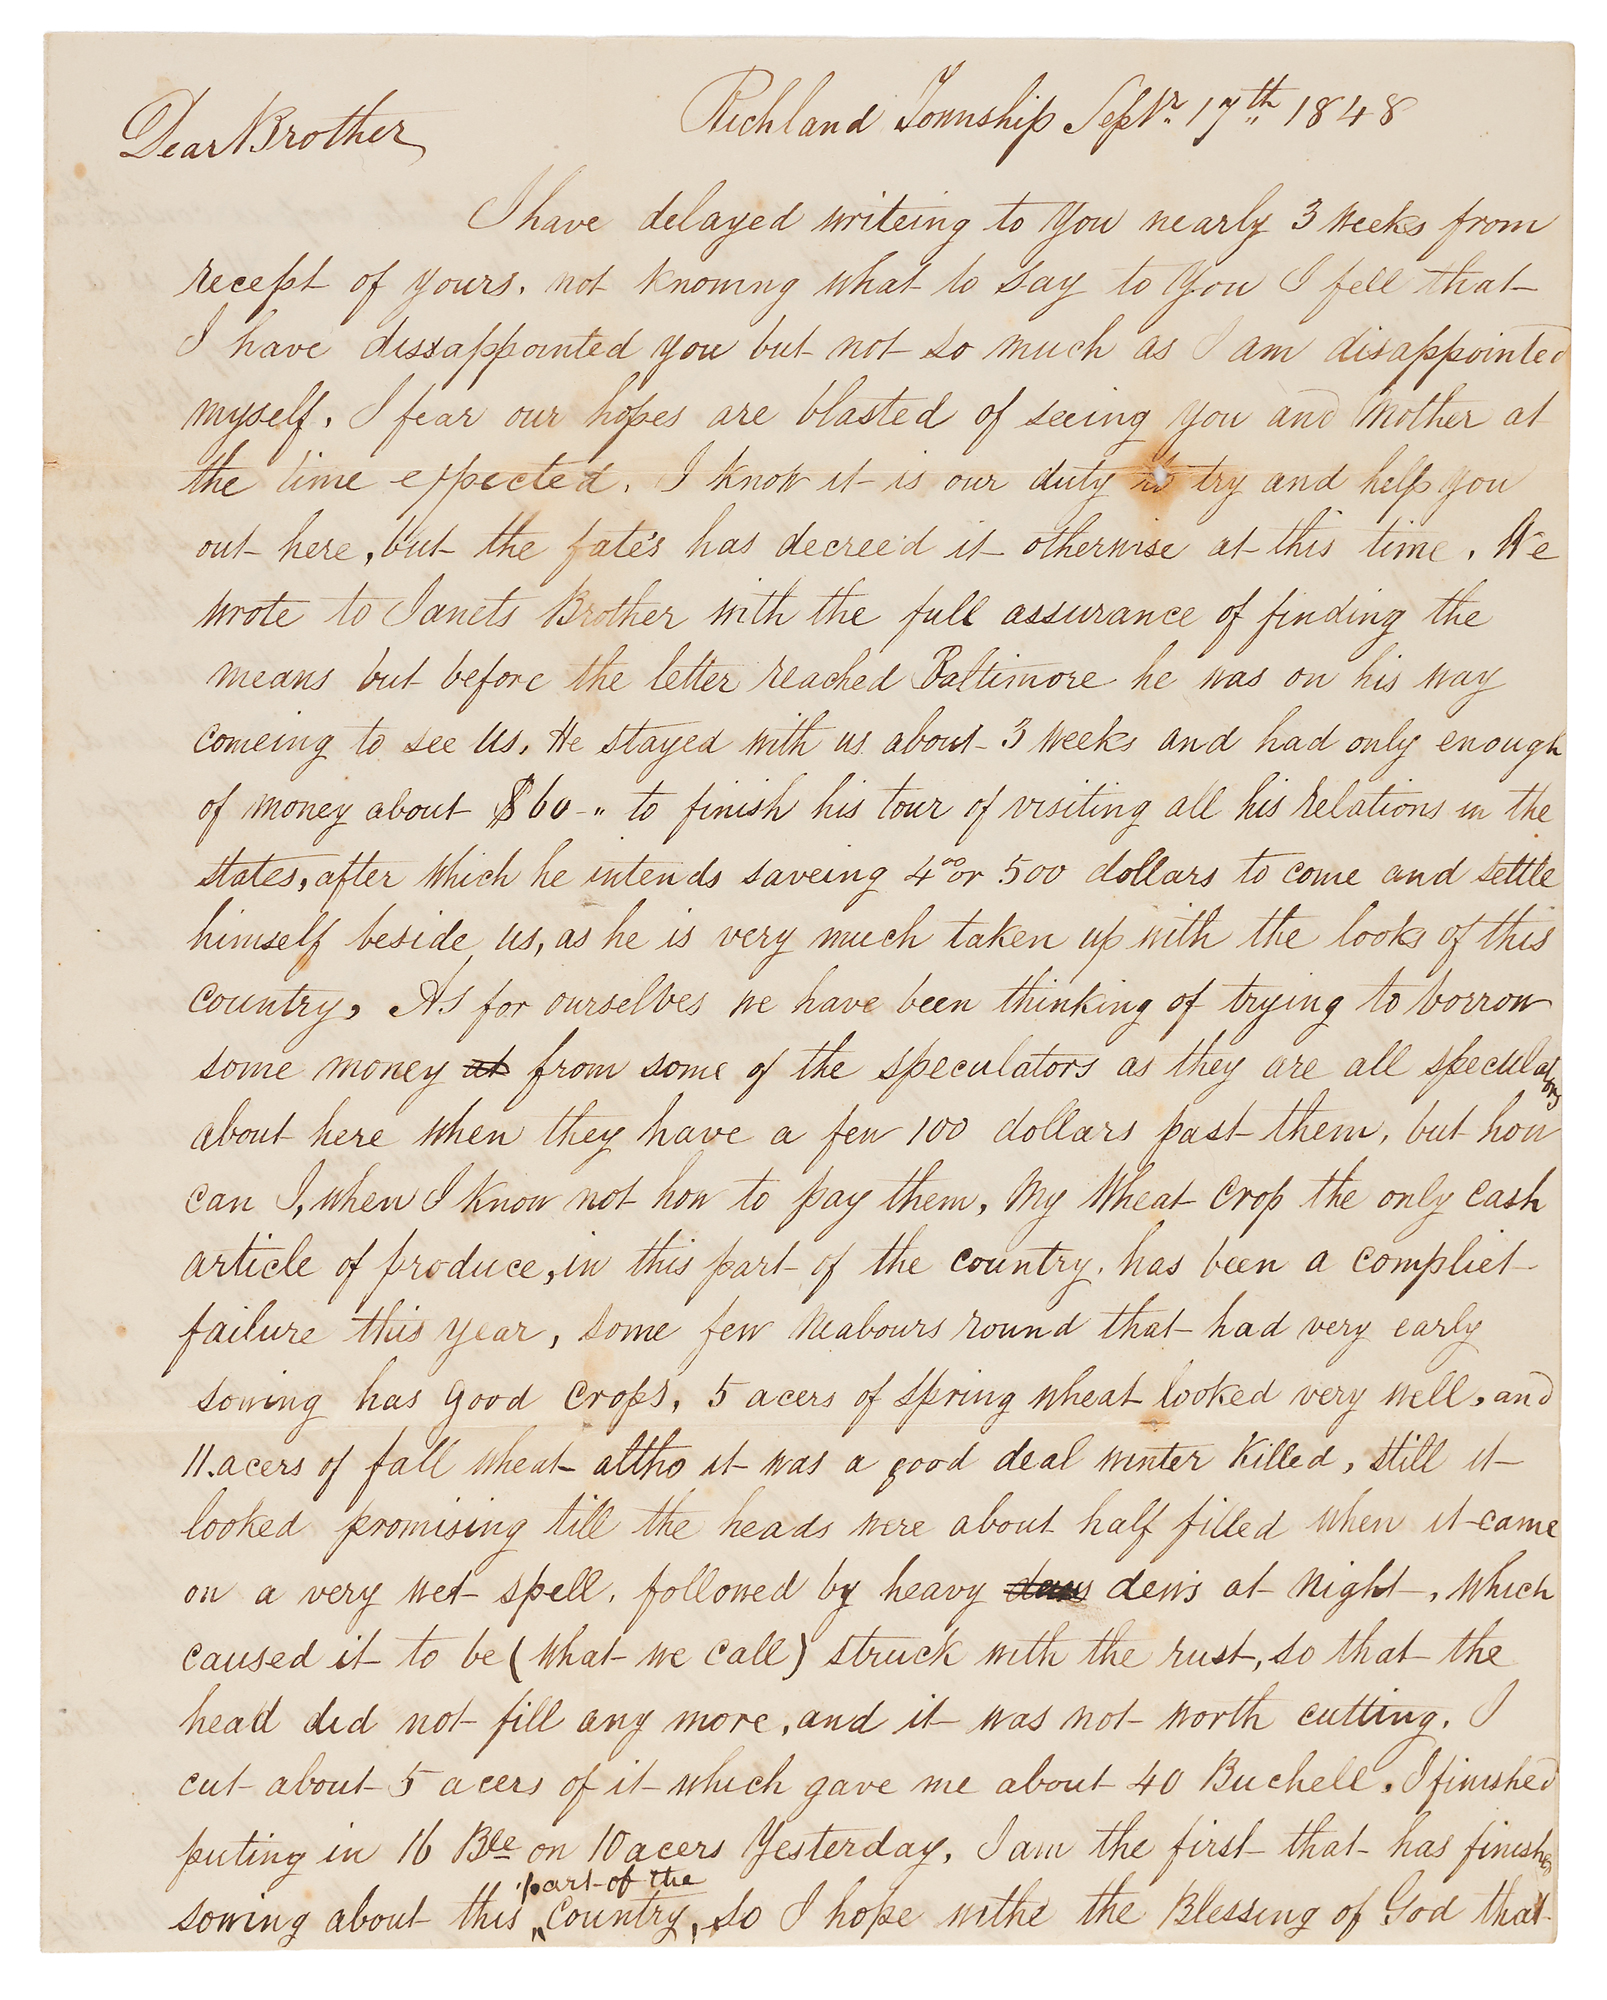 Richland Township Septr. 17th 1848
Dear Brother
I have delayed writeing to you nearly 3 weeks from
recept of yours, not knowing what to say to you I fell that
I have dissappointed you but not so much as I am disappointed
myself. I fear our hopes are blasted of seeing you and Mother at
the time expected. I know it is our duty to try and help you
out here, but the fate's has decree'd it otherwise at this time. We
wrote to Janets Brother with the full assurance of finding the
means but before the letter reached Baltimore he was on his way
comeing to see us. He stayed with us about 3 weeks and had only enough
of money about $60-" to finish his tour of visiting all his relations in the
states, after which he intends saveing 4oo or 500 dollars to come and settle
himself beside us, as he is very much taken up with the looks of this
country, As for ourselves we have been thinking of trying to borrow
some money at from some of the speculators as they are all speculators
about here when they have a few 100 dollars past them, but how
can I, when I know not how to pay them, My Wheat Crop the only cash
article of produce, in this part of the country, has been a compliet
failure this year, some few Neabours round that had very early
sowing has good crops, 5 acers of spring wheat looked very well, and
11. acers of fall wheat altho it was a good deal winter killed, still it
looked promising till the heads were about half filled when it came
on a very wet spell, followed by heavy dews dew's at night, which
caused it to be (what we call) struck with the rust, so that the
head did not fill any more, and it was not worth cutting. I
cut about 5 acers of it which gave me about 40 Buchell. I finished
puting in 16 Ble on 10 acers Yesterday, I am the first that has finished
part of the
sowing about this country, so I hope withe the Blessing of God that